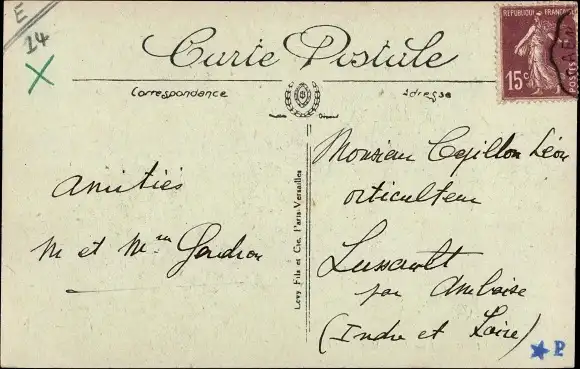 E
24
X
Carte Postale
Correspondance
Adresse
RÉPUBLIQUE FRANÇAISE
15c
POSTES
Amitiés
M et Mme Gendron
Levy Fils et Cie, Paris-Versailles
Monsieur Léon
orticulteur
Lussault
par Amboise
(Indre et Loire)
★ P